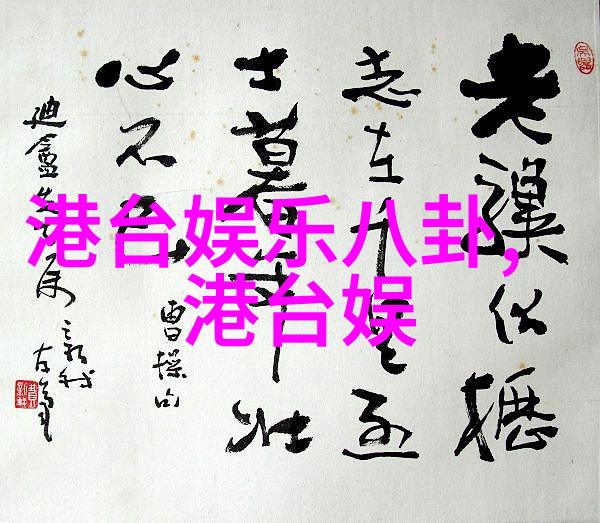 老驥伏櫪
志在千里烈
士暮年壯
心不已
曹操句
港台娱乐八卦,
港台娱